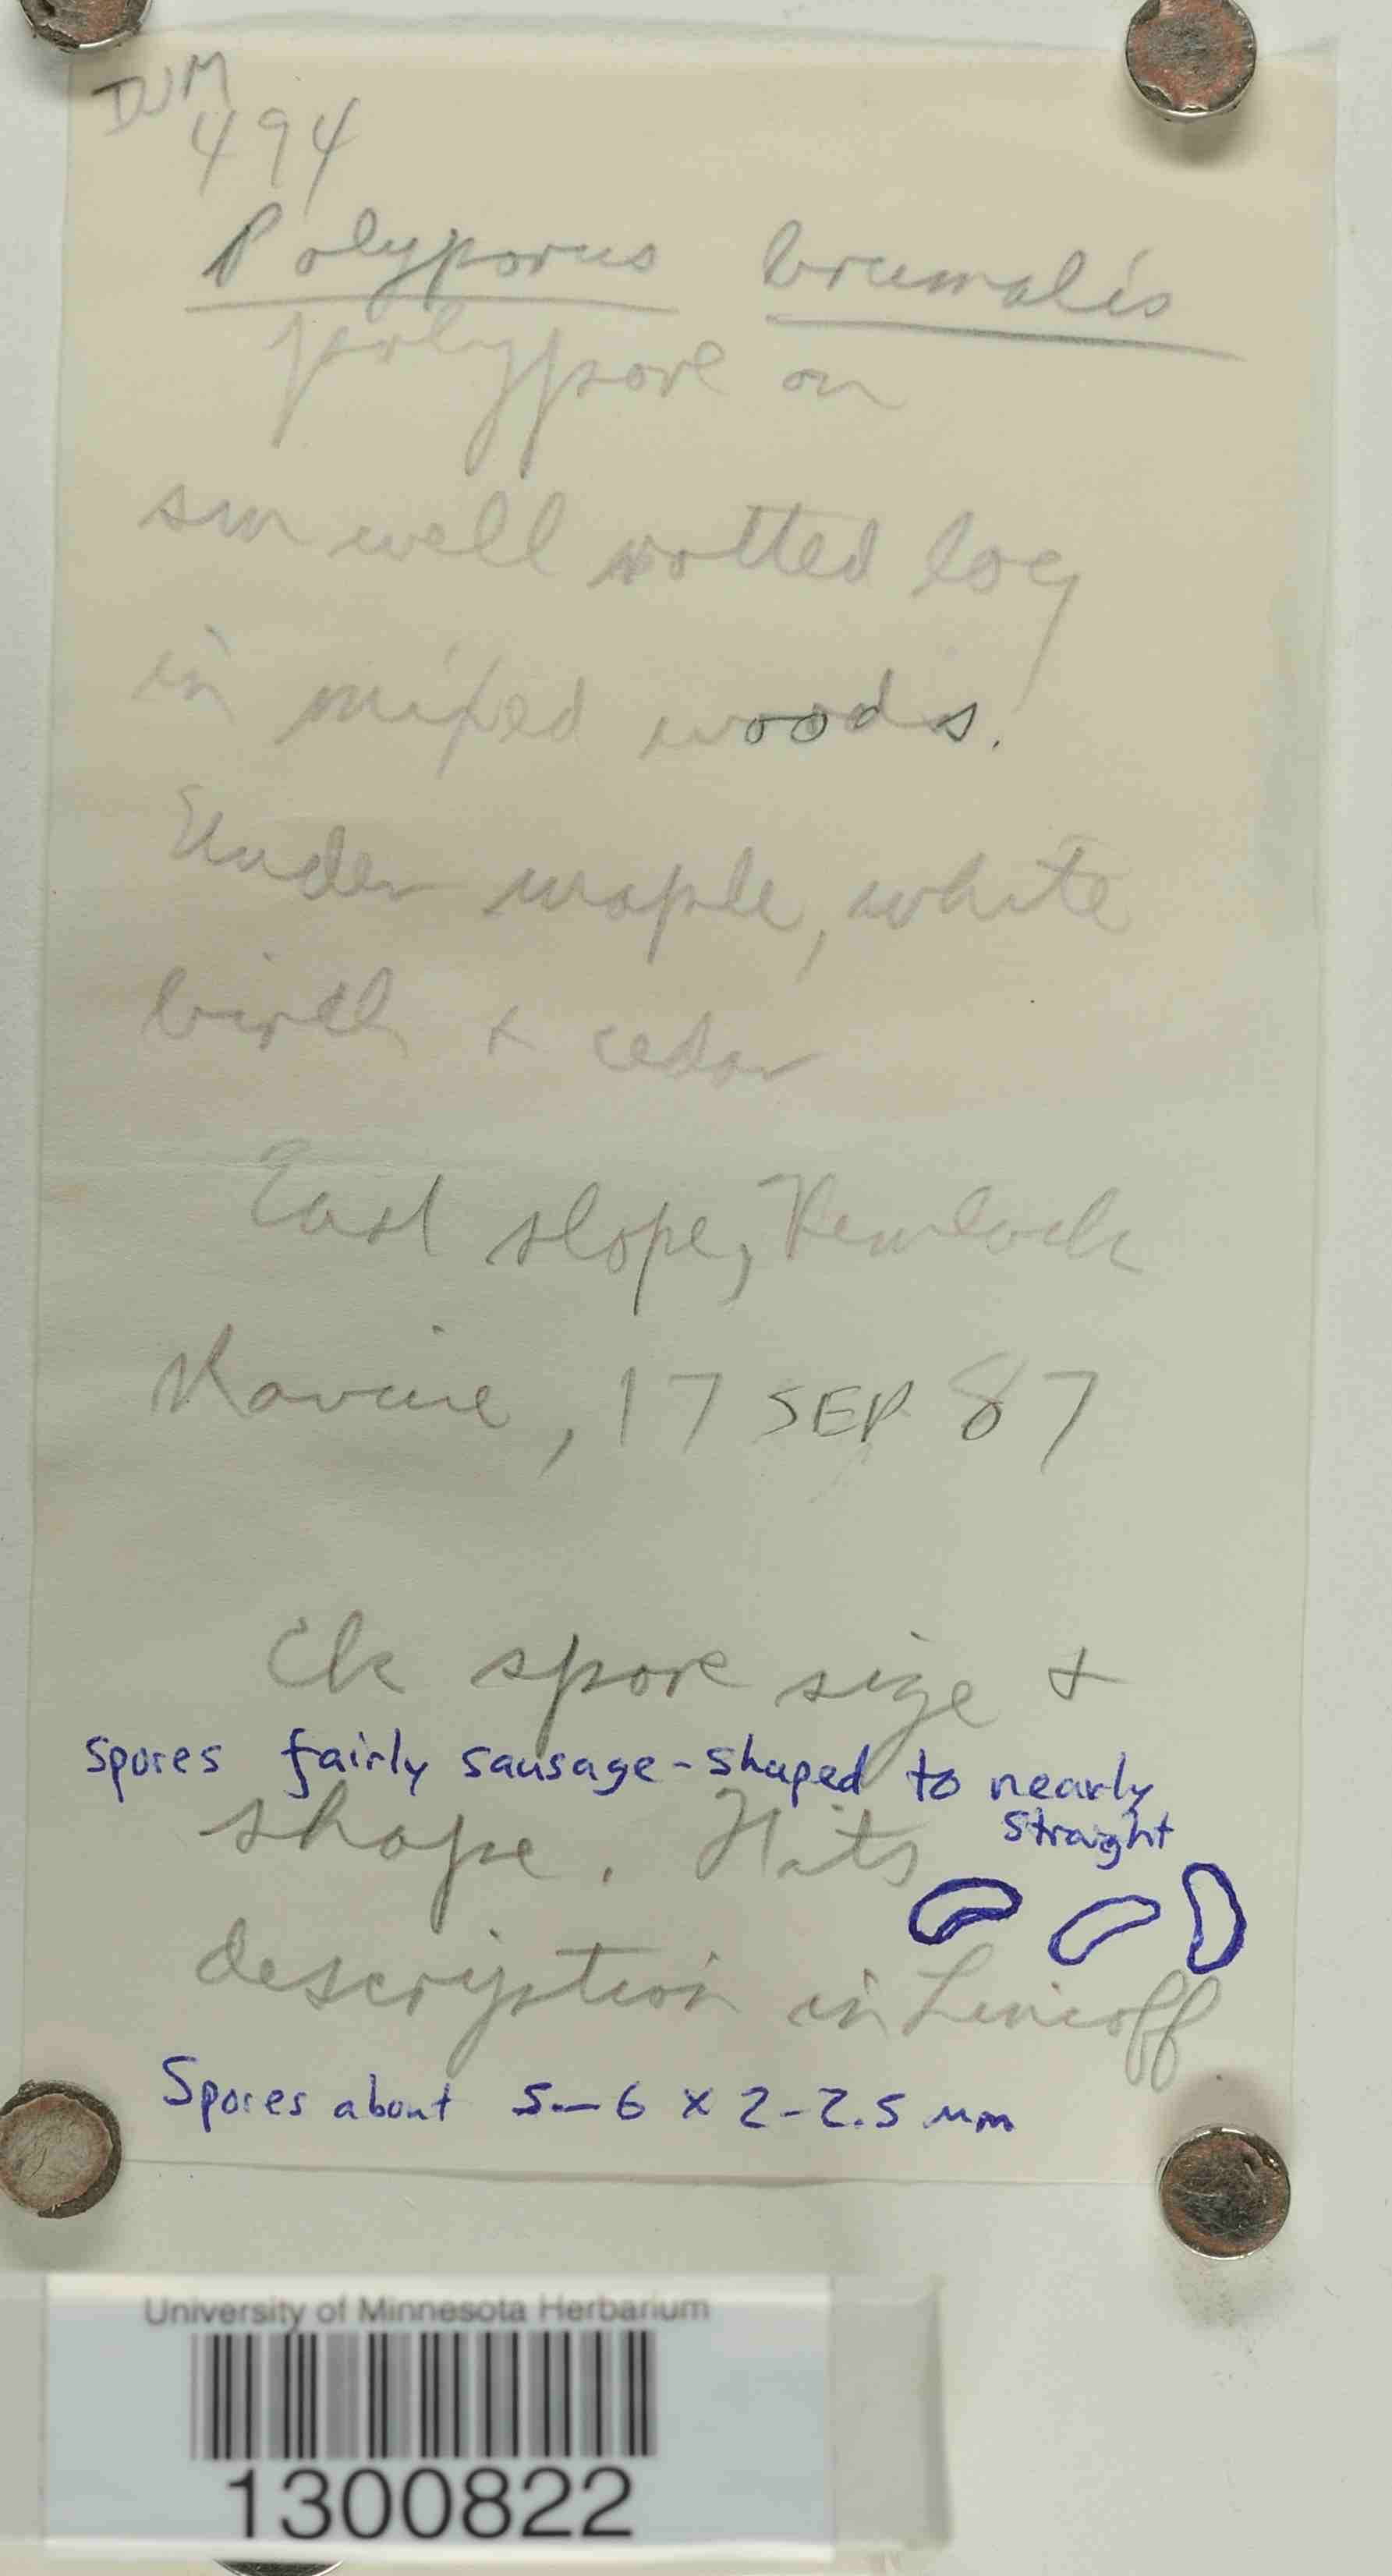 DJM
494
Polyporus brumalis
polypore on
sm well rotted log
in mixed woods.
Under maple, white
birch + cedar
East slope, Hemlock
Ravine, 17 SEP 87
Ck spore size +
spores fairly sausage-shaped to nearly
straight
shape. Fits
description in Lincoff
Spores about 5-6 x 2-2.5 µm
University of Minnesota Herbarium
1300822